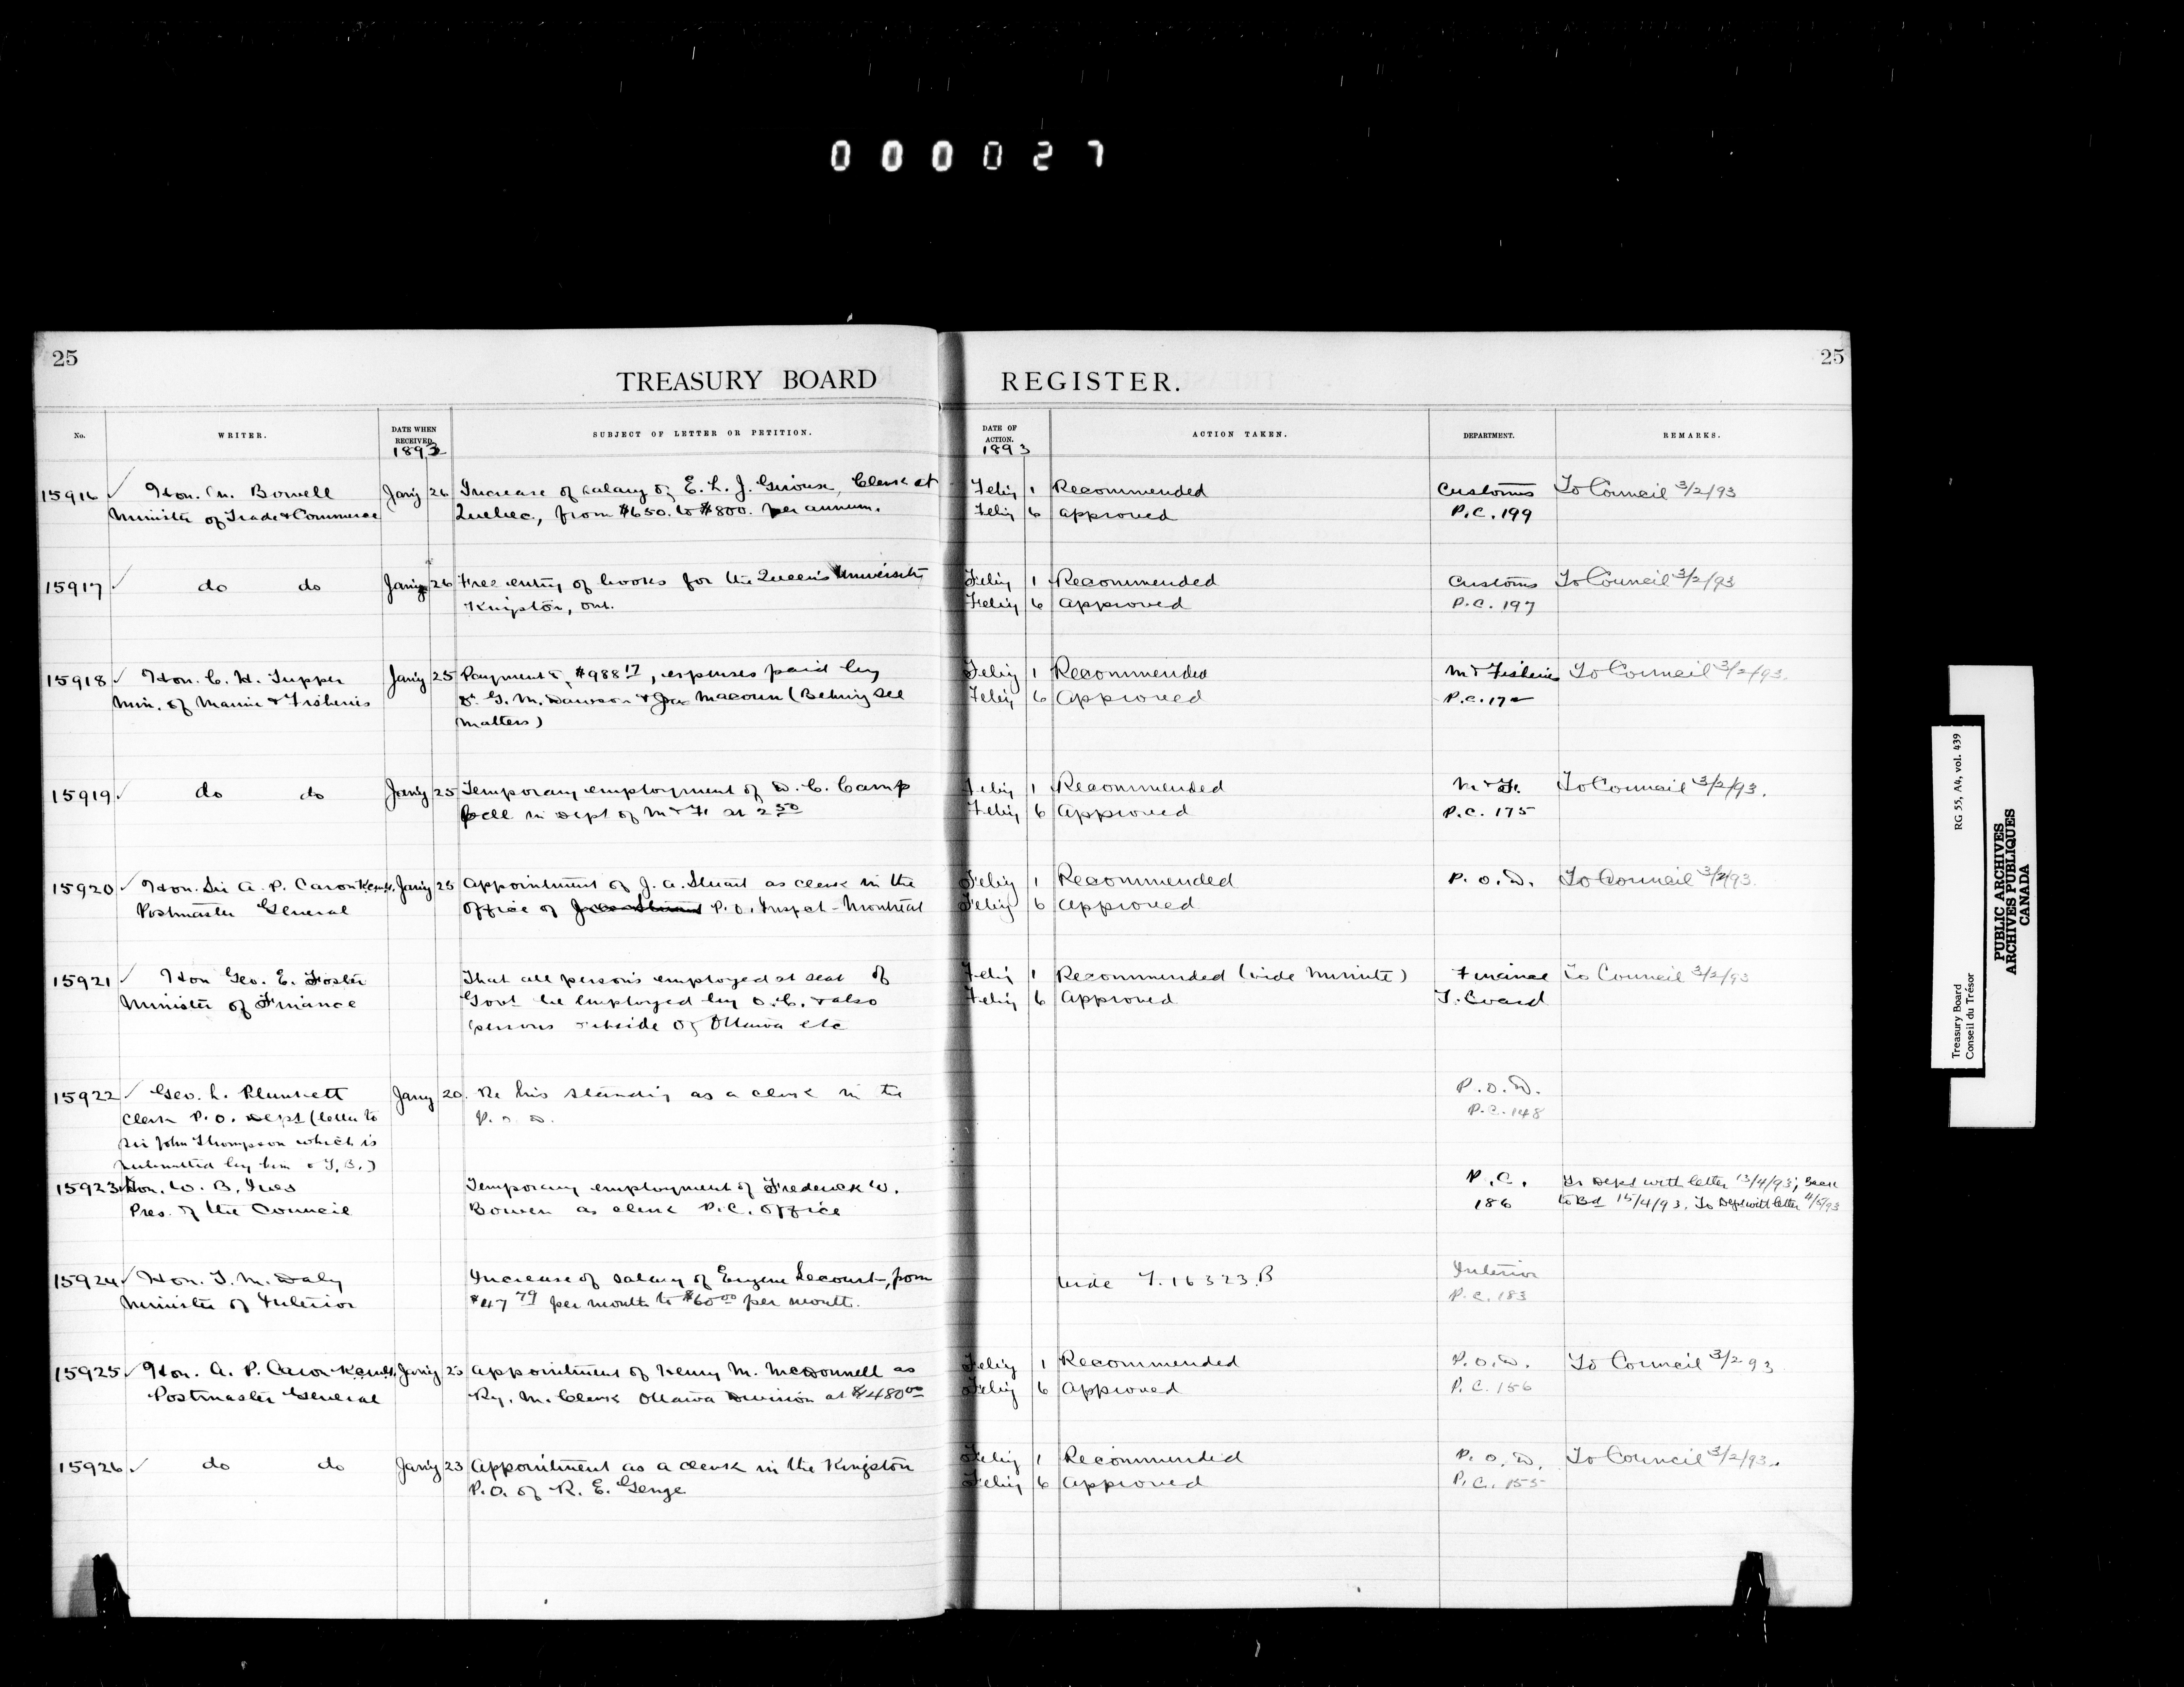 000027
25
25
TREASURY BOARD REGISTER.
No.
WRITER.
DATE WHEN RECEIVED.
1893
SUBJECT OF LETTER OR PETITION.
DATE OF ACTION.
1893
ACTION TAKEN.
DEPARTMENT.
REMARKS.
15916 ✓ Hon. M. Bowell Jan'y 26 Increase of salary of E. L. J. Giroux, Clerk at Feb'y 1 Recommended Customs To Council 3/2/93
Minister of Trade & Commerce Quebec, from $650. to $800. per annum. Feb'y 6 approved P.C. 199
15917 ✓ do do Jan'y 26 Free entry of books for the Queen's University Feb'y 1 Recommended Customs To Council 3/2/93
Kingston, Ont. Feb'y 6 Approved P.C. 197
15918 ✓ Hon. C. H. Tupper Jan'y 25 Payment of $988 17, expenses paid by Feb'y 1 Recommended M & Fisheries To Council 3/2/93.
Min. of Marine & Fisheries Dr. G. M. Dawson & Macoun (Behring Sea Feb'y 6 Approved P.C. 17
matters)
15919 ✓ do do Jan'y 25 Temporary employment of D. C. Camp Feb'y 1 Recommended M & F. To Council 3/2/93.
bell in Dept of M & F. at 2 50 Feb'y 6 Approved P.C. 175
15920 ✓ Hon. Sir A. P. Caron K.C.M.G. Jan'y 25 Appointment of J. A. Stuart as clerk in the Feb'y 1 Recommended P.O.D. To Council 3/2/93.
Postmaster General Office of P.O. Inspct - Montreal Feb'y 6 Approved
15921 ✓ Hon Geo. E. Foster That all persons employed at seat of Feb'y 1 Recommended (vide Minute) Finance To Council 3/2/93
Minister of Finance Govt be employed by O.C. & also Feb'y 6 Approved T. Board
persons outside of Ottawa etc
15922 ✓ Geo. L. Plunkett Jan'y 20. Re his standing as a clerk in the P.O.D.
Clerk P.O. Dept (letter to P.O.D. P.C. 148
Sir John Thompson which is
submitted by him to T.B.)
15923 Hon. W. B. Ives Temporary employment of Frederick W. P.C. To Dept with letter 13/4/93; Back
Pres. of the Council Bowen as clerk P.C. Office 186 to Bd 15/4/93. To Dept with letter 4/5/93
15924 ✓ Hon. T. M. Daly Increase of salary of Eugene Lecourt, from Vide T. 16323.B Interior
Minister of Interior $47 79 per month to $60 00 per month. P.C. 183
15925 ✓ Hon. A. P. Caron K.C.M.G. Jan'y 23 Appointment of Henry M. McDonnell as Feb'y 1 Recommended P.O.D. To Council 3/2 93
Postmaster General Ry. M. Clerk Ottawa Division at $480 00 Feb'y 6 Approved P.C. 156
15926 ✓ do do Jan'y 23 Appointment as a clerk in the Kingston Feb'y 1 Recommended P.O.D. To Council 3/2/93.
P.O. of R. E. Genge Feb'y 6 Approved P.C. 155
Treasury Board
Conseil du Trésor
RG 55, A4, vol. 439
PUBLIC ARCHIVES
ARCHIVES PUBLIQUES
CANADA